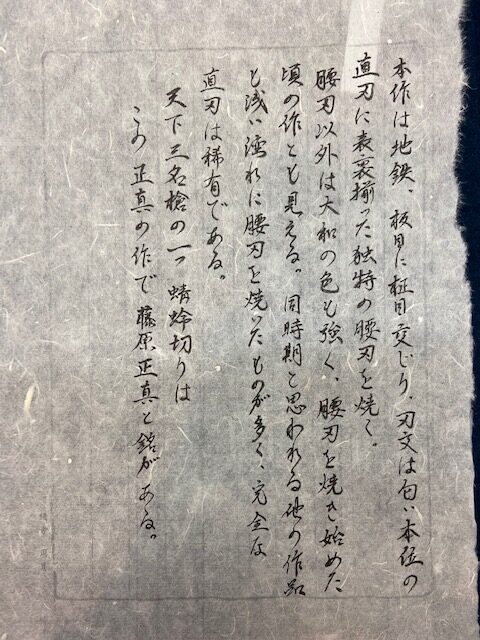 本作は地鉄、板目に柾目交じり、刃文は匂い本位の
直刃に表裏揃った独特の腰刃を焼く。
腰刃以外は大和の色も強く、腰刃を焼き始めた
頃の作とも見える。同時期と思われる他の作品
も浅い濡れに腰刃を焼いたものが多く、完全な
直刃は稀有である。
天下三名槍の一つ蜻蛉切りは
この正真の作で藤原正真と銘がある。